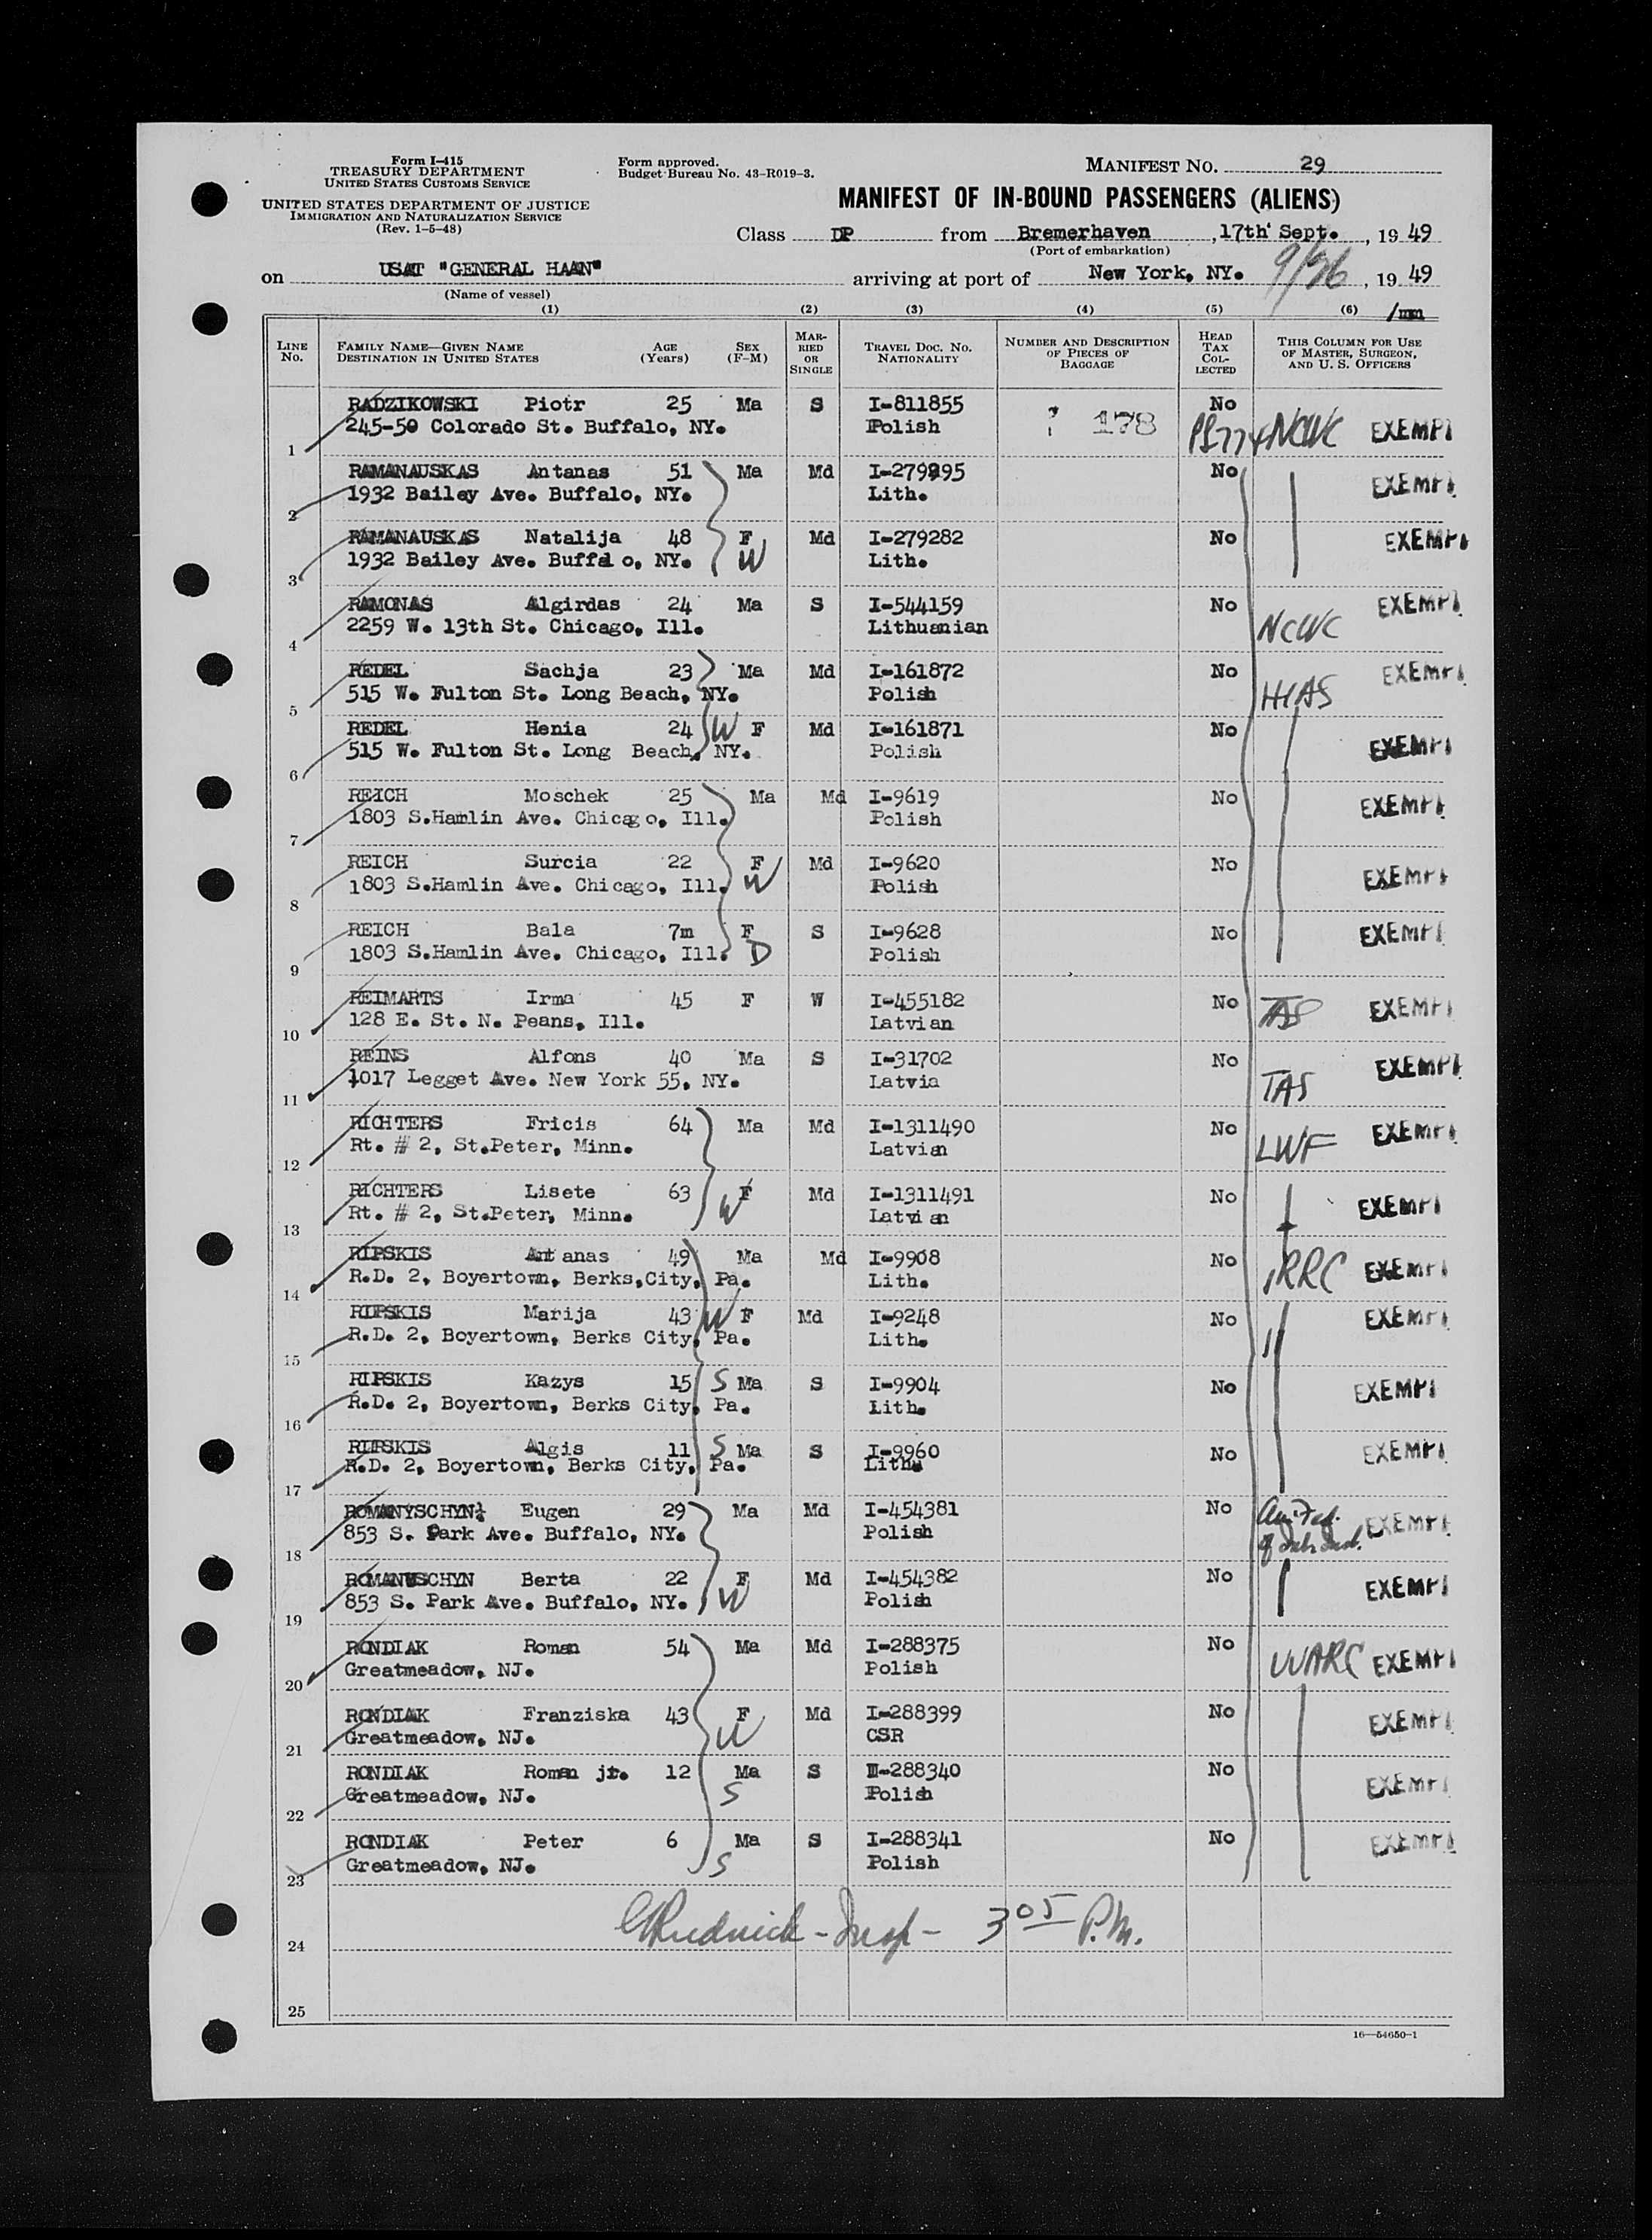 Form I-415
TREASURY DEPARTMENT
UNITED STATES CUSTOMS SERVICE
UNITED STATES DEPARTMENT OF JUSTICE
IMMIGRATION AND NATURALIZATION SERVICE
(Rev. 1-5-48)
Form approved.
Budget Bureau No. 43-R019-3.
MANIFEST NO. 29
MANIFEST OF IN-BOUND PASSENGERS (ALIENS)
Class DP from Bremerhaven, 17th Sept., 1949
(Port of embarkation)
on USAT "GENERAL HAAN" arriving at port of New York, NY. 9/26, 1949
(Name of vessel)
(1) (2) (3) (4) (5) (6) /mm
LINE No. FAMILY NAME—GIVEN NAME DESTINATION IN UNITED STATES AGE (Years) SEX (F-M) MARRIED OR SINGLE TRAVEL DOC. NO. NATIONALITY NUMBER AND DESCRIPTION OF PIECES OF BAGGAGE HEAD TAX COLLECTED THIS COLUMN FOR USE OF MASTER, SURGEON, AND U. S. OFFICERS
RADZIKOWSKI Piotr 25 Ma S I-811855 ? 178 No
1 245-50 Colorado St. Buffalo, NY. Polish NCWC EXEMPT
RAMANAUSKAS Antanas 51 Ma Md I-279295 No EXEMPT
2 1932 Bailey Ave. Buffalo, NY. Lith.
RAMANAUSKAS Natalija 48 F W Md I-279282 No EXEMPT
3 1932 Bailey Ave. Buffalo, NY. Lith.
RAMONAS Algirdas 24 Ma S I-544159 No EXEMPT
4 2259 W. 13th St. Chicago, Ill. Lithuanian NCWC
REDEL Sachja 23 Ma Md I-161872 No EXEMPT
5 515 W. Fulton St. Long Beach, NY. Polish HIAS
REDEL Henia 24 W F Md I-161871 No EXEMPT
6 515 W. Fulton St. Long Beach, NY. Polish
REICH Moschek 25 Ma Md I-9619 No EXEMPT
7 1803 S.Hamlin Ave. Chicago, Ill. Polish
REICH Surcia 22 F W Md I-9620 No EXEMPT
8 1803 S.Hamlin Ave. Chicago, Ill. Polish
REICH Bala 7m F D S I-9628 No EXEMPT
9 1803 S.Hamlin Ave. Chicago, Ill. Polish
REIMARTS Irma 45 F W I-455182 No TAS EXEMPT
10 128 E. St. N. Peans, Ill. Latvian
REINS Alfons 40 Ma S I-31702 No EXEMPT
11 1017 Legget Ave. New York 55, NY. Latvia TAS
RICHTERS Fricis 64 Ma Md I-1311490 No EXEMPT
12 Rt. # 2, St.Peter, Minn. Latvian LWF
RICHTERS Lisete 63 W F Md I-1311491 No EXEMPT
13 Rt. # 2, St.Peter, Minn. Latvian
RIPSKIS Antanas 49 Ma Md I-9908 No IRRC EXEMPT
14 R.D. 2, Boyertown, Berks,City, Pa. Lith.
RIPSKIS Marija 43 W F Md I-9248 No EXEMPT
15 R.D. 2, Boyertown, Berks City, Pa. Lith.
RIPSKIS Kazys 15 S Ma S I-9904 No EXEMPT
16 R.D. 2, Boyertown, Berks City, Pa. Lith.
RIPSKIS Algis 11 S Ma S I-9960 No EXEMPT
17 R.D. 2, Boyertown, Berks City, Pa. Lith.
ROMANYSCHYN Eugen 29 Ma Md I-454381 No EXEMPT
18 853 S. Park Ave. Buffalo, NY. Polish
ROMANYSCHYN Berta 22 F W Md I-454382 No EXEMPT
19 853 S. Park Ave. Buffalo, NY. Polish
RONDIAK Roman 54 Ma Md I-288375 No UUARC EXEMPT
20 Greatmeadow, NJ. Polish
RONDIAK Franziska 43 F W Md I-288399 No EXEMPT
21 Greatmeadow, NJ. CSR
RONDIAK Roman jr. 12 Ma S S I-288340 No EXEMPT
22 Greatmeadow, NJ. Polish
RONDIAK Peter 6 Ma S S I-288341 No EXEMPT
23 Greatmeadow, NJ. Polish
Rudnick - Insp - 3 05 P.M.
24
25
16—54650-1